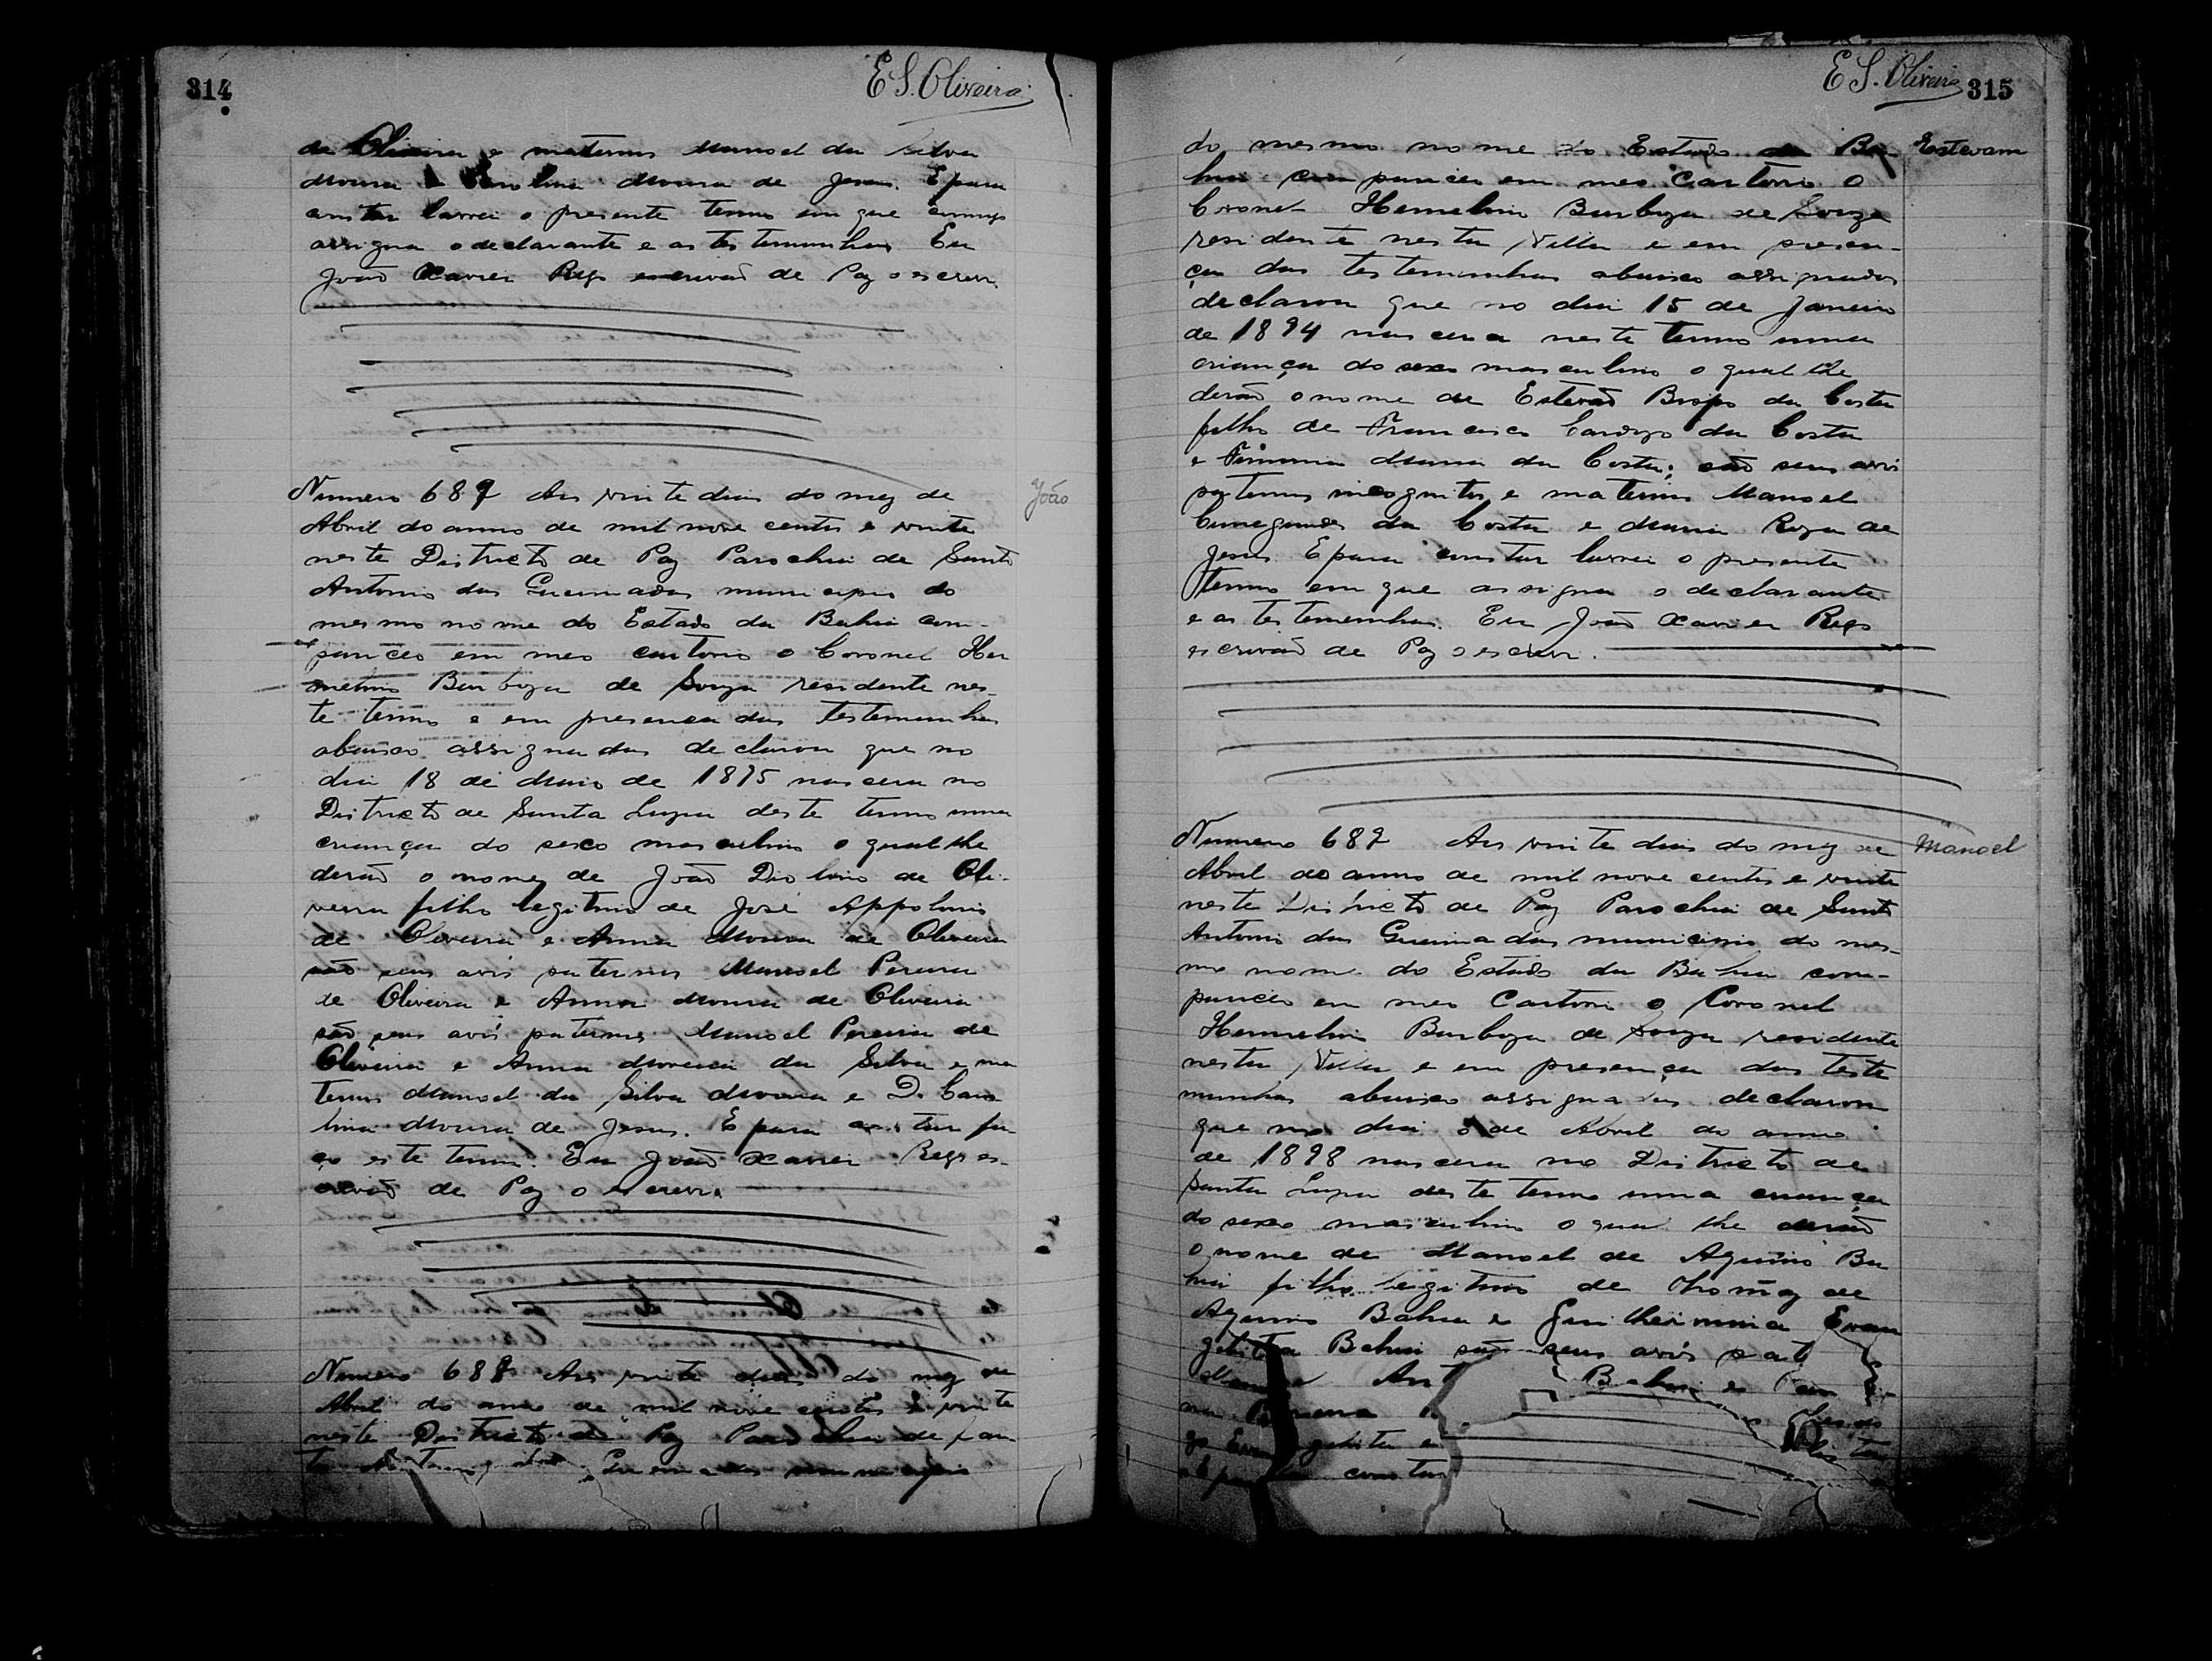 314
E S. Oliveira
de Oliveira e maternos Manoel da Silva
Moura e Carolina Moura de Jesus. E para
constar lavrei o presente termo em que commigo
assigna o declarante e as testemunhas. Eu
João Xavier Rego escrivão de Paz o escrevi
João
Numero 687 Aos vinte dias do mez de
Abril do anno de mil nove centos e vinte
neste Districto de Paz Parochia de Santo
Antonio das Queimadas municipio do
mesmo nome do Estado da Bahia com-
pareceo em meo cartorio o Coronel Her
melino Barboza de Souza residente nes-
te termo e em presenca das testemunhas
abaixo assignadas declarou que no
dia 18 de Maio de 1895 nascera no
Districto de Santa Luzia deste termo uma
criança do sexo masculino o qual lhe
derão o nome de João de Oli-
veira filho legitimo de José Appolonio
de Oliveira e Anna Moura de Oliveira
são seus avós paternos Manoel Pereira
de Oliveira e Anna Moura de Oliveira
são seus avós paternos Manoel Pereira de
Oliveira e Anna Moreira da Silva e ma
ternos Manoel da Silva Moura e D. Caro
lina Moura de Jesus. E para constar fa
ço este termo. Eu João Xavier Rego es-
crivão de Paz o escrevi.
Numero 688 Aos vinte dias do mez de
Abril do anno de mil nove centos e vinte
neste Districto de Paz Parochia de San
to Antonio das Queimadas municipio
E S. Oliveira 315
do mesmo nome do Estado da Ba Estevam
hia compareceu em meo Cartorio o
Coronel Hermelino Barboza de Souza
residente nesta Villa e em presen-
ça das testemunhas abaixo assignadas
declarou que no dia 15 de Janeiro
de 1894 nascera neste termo uma
criança do sexo masculino o qual lhe
derão o nome de Estevão Bispo da Costa
filho de Francisco Cardozo da Costa
e Maria da Costa; são seus avós
paternos incognitos e maternos Manoel
Cunegundes da Costa e Maria Roza de
Jesus. E para constar lavrei o presente
termo em que assigna o declarante
e as testemunhas. Eu João Xavier Rego
escrivão de Paz o escrevi.
Numero 689 Aos vinte dias do mez de Manoel
Abril do anno de mil nove centos e vinte
neste Districto de Paz Parochia de Santo
Antonio das Queimadas municipio do mes-
mo nome do Estado da Bahia com-
pareceo em meo Cartorio o Coronel
Hermelino Barboza de Souza residente
nesta Villa e em presença das teste
munhas abaixo assignadas declarou
que no dia de Abril do anno
de 1898 nascera no Districto de
Santa Luzia deste termo uma criança
do sexo masculino o qual lhe derão
o nome de Manoel de Aquino Ba
hia filho legitimo de Thomaz de
Aquino Bahia e Guilhermina Evan
gelista Bahia são seus avós pat
Ant Bahia e
constar